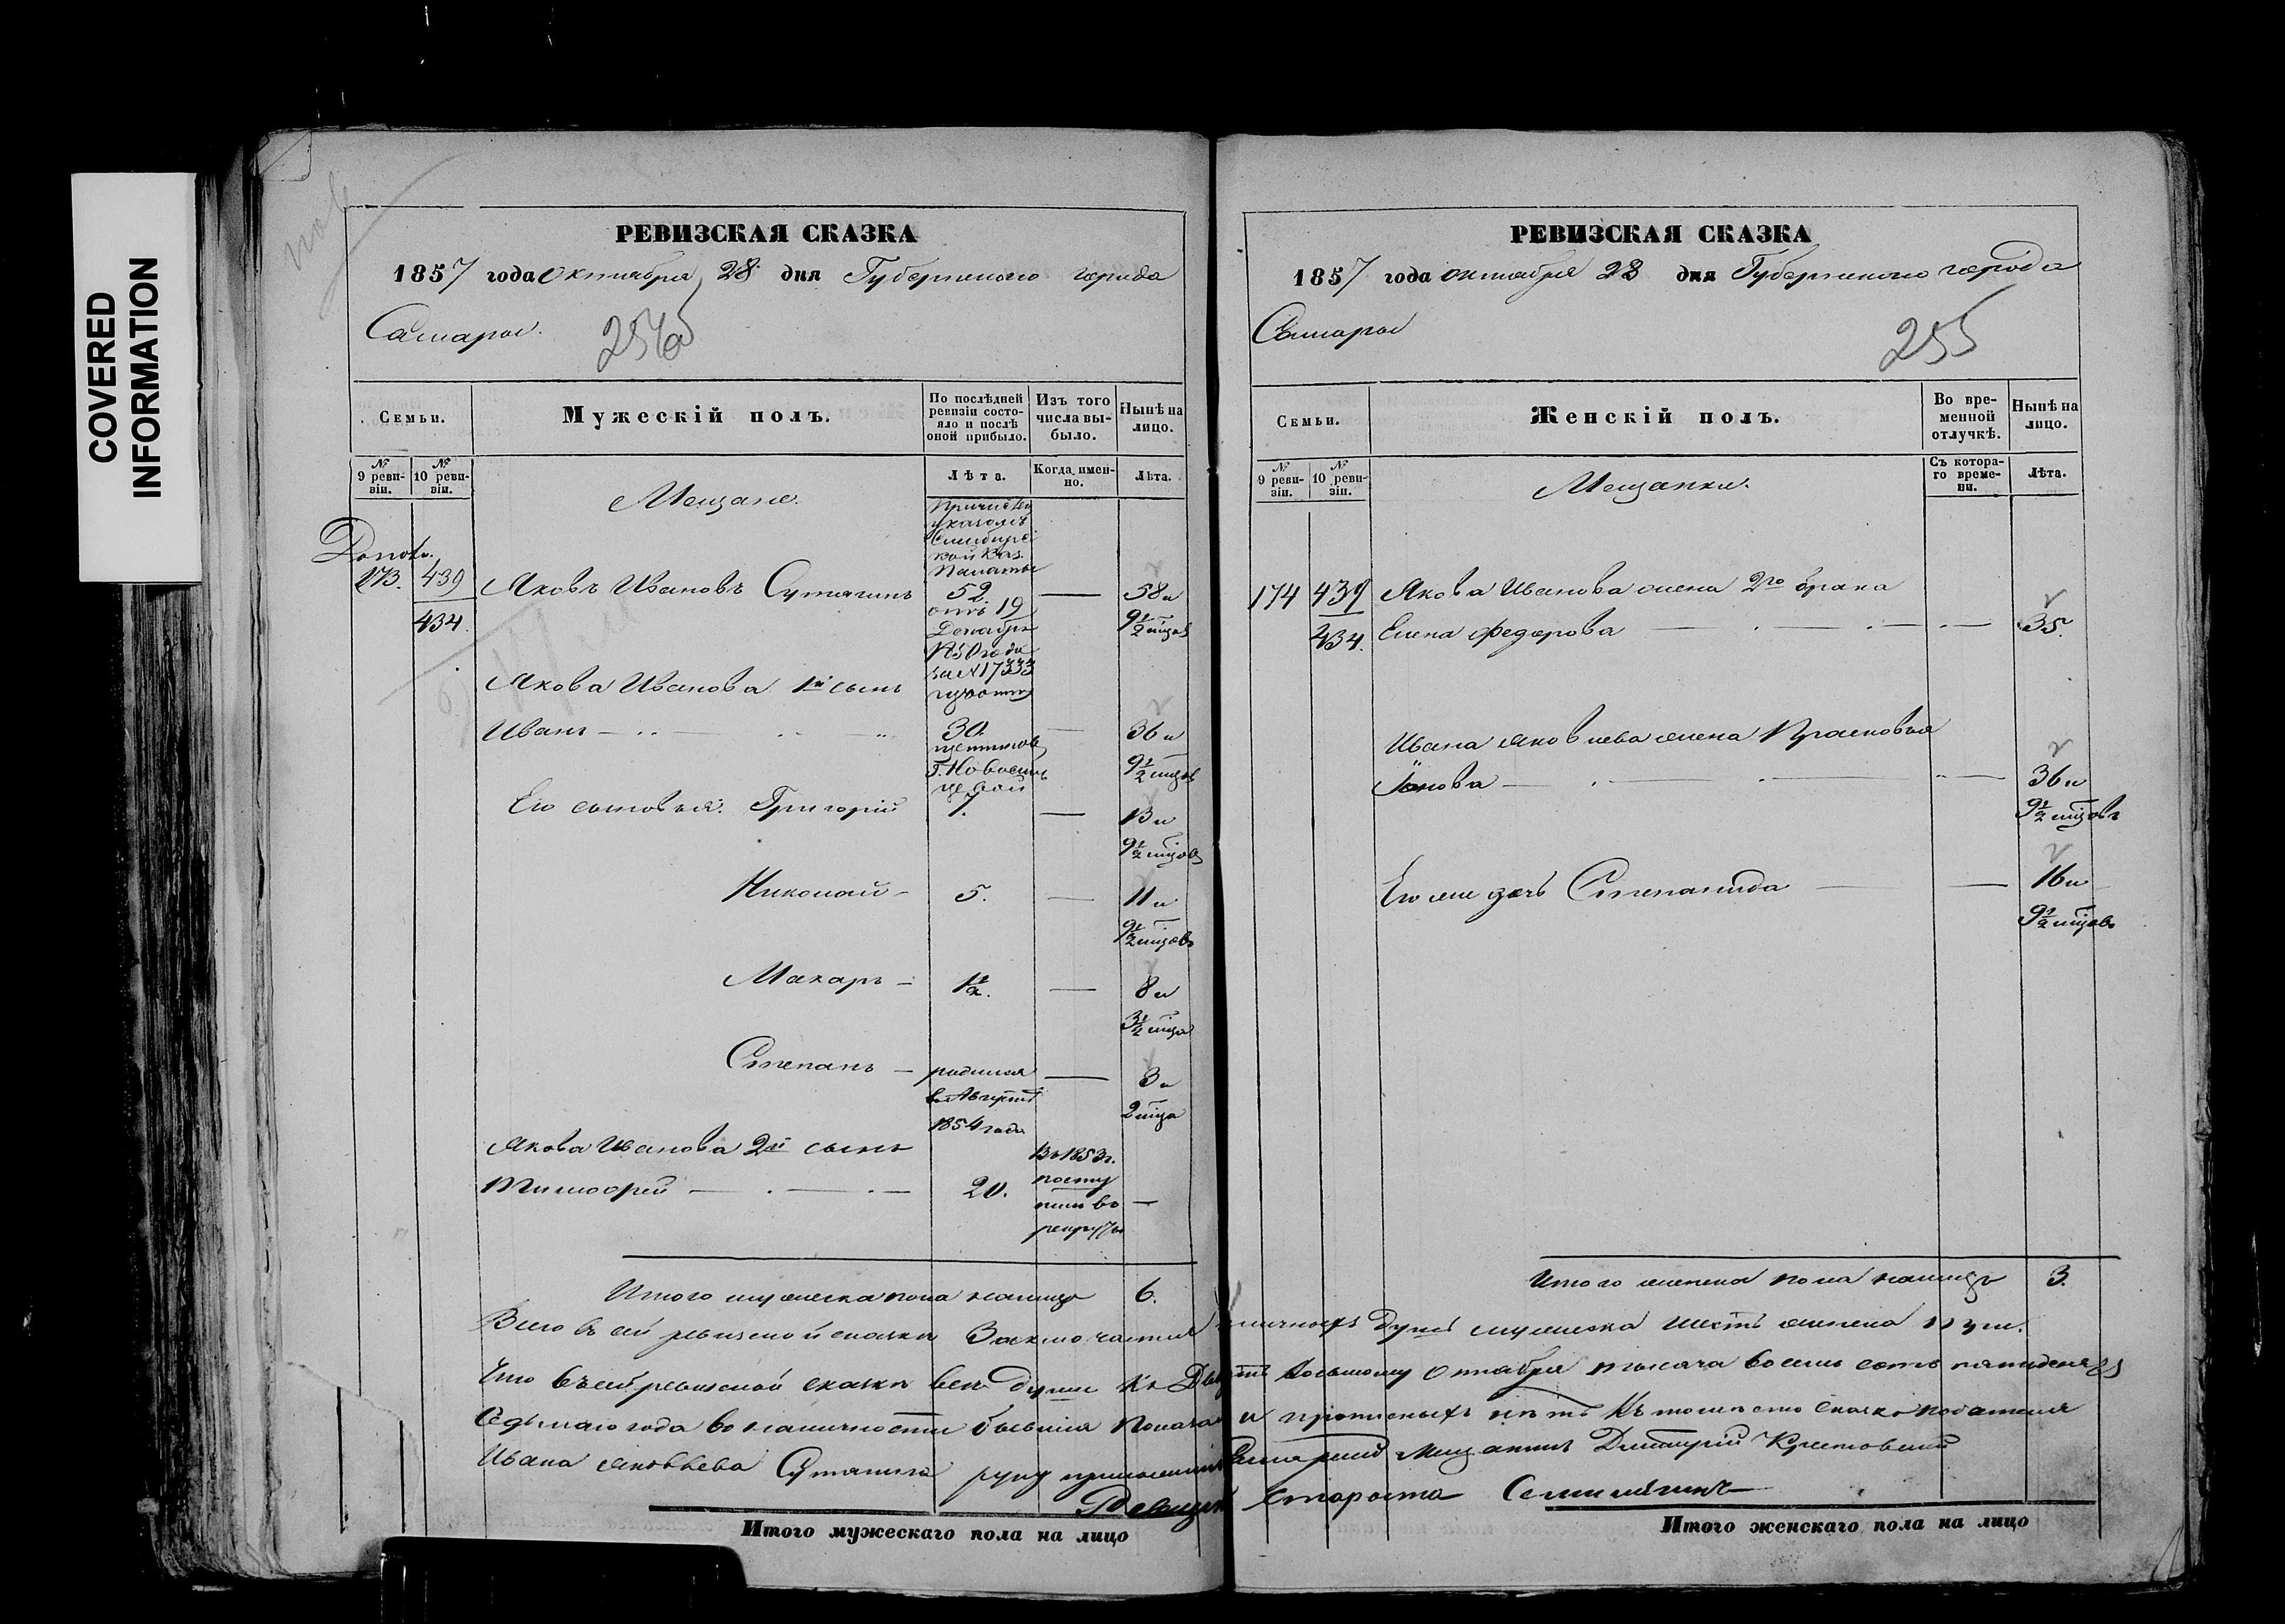 COVERED
INFORMATION
РЕВИЗСКАЯ СКАЗКА
1857 года октября 28 дня Губернского города
Самары.
254
Семьи.
Мужескій полъ.
По послѣдней ревизіи состояло и послѣ оной прибыло.
Изъ того числа выбыло.
Нынѣ на лицо.
№ 9 ревизіи.
№ 10 ревизіи.
Лѣта.
Когда именно.
Лѣта.
Мещане.
Причислен
указомъ
Симбирс
кой Каз.
Палаты
173. 439 Яковъ Ивановъ Сутягинъ 52 — 58 и
434. отъ 19 9½ мцов
Декабря
1850 года
за № 17333
Якова Иванова 1й сынъ
Иванъ 30. — 36 и
9½ мцов
Его сыновья: Григорій 7. — 13 и
9½ мцов
Николай 5. — 11 и
9½ мцовъ
Макаръ 1½. — 8 и
3½ мца
Степанъ — родился — 3 и
въ Августѣ 2 мца
1854 года
Якова Иванова 2й сынъ Въ 1853 г.
Тимофей 20. посту
пилъ въ —
рекруты
Итого мужеска пола налицо 6.
РЕВИЗСКАЯ СКАЗКА
1857 года октября 28 дня Губернского города
Самары
255
Семьи.
Женскій полъ.
Во временной отлучкѣ.
Нынѣ на лицо.
№ 9 ревизіи.
№ 10 ревизіи.
Съ котораго времени.
Лѣта.
Мещанки.
174 439 Якова Иванова жена 2го брака
434. Елена Федорова — 35.
Ивана Яковлева жена Прасковья
Іонова — 36 и
9½ мцовъ
Его же дочь Степанида — 16 и
9½ мцовъ
Итого женска пола налицо 3.
Всего въ сей ревизской сказки Заключается наличныхъ душъ мужеска шесть женска три.
Что въ сей ревизской сказки всѣ души къ Двадцать восьмому Октября тысяча восемь сотъ пятидесят
Седьмаго года во наличности бывшія показа и прописныхъ нѣтъ Къ
Ивана Яковлева Сутягина руку приложилъ Самарскій мещанинъ Дмитрій
Староста
Итого мужескаго пола на лицо
Итого женскаго пола на лицо